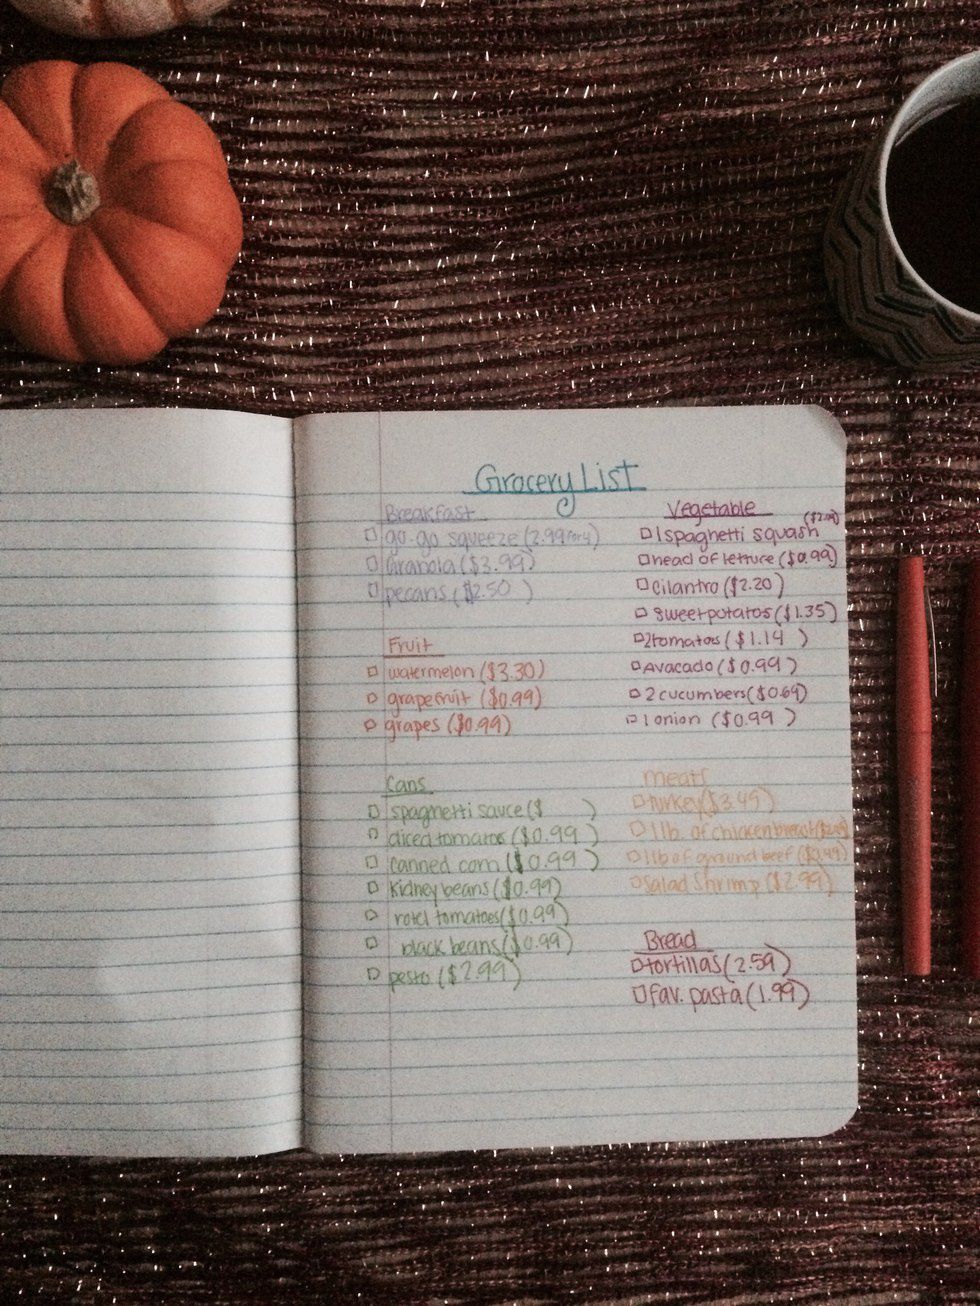 Grocery List
Breakfast
go-go squeeze (2.99 for 4)
Granola ($3.99)
pecans ($2.50 )
Fruit
watermelon ($3.30)
grapefruit ($0.99)
grapes ($0.99)
Cans
spaghetti sauce ($ )
diced tomatoes ($0.99 )
canned corn ($0.99 )
kidney beans ($0.99)
rotel tomatoes ($0.99)
black beans ($0.99)
pesto ($2.99)
Vegetable
1 spaghetti squash
head of lettuce ($0.99)
Cilantro ($2.20)
sweet potatos ($1.35)
2 tomatoes ($1.14 )
Avacado ($0.99)
2 cucumbers ($0.69)
1 onion ($0.99 )
meats
turkey ($3.49)
1 lb. of chicken breast
1 lb of ground beef
Salad Shrimp ($2.99)
Bread
tortillas (2.59)
fav. pasta (1.99)